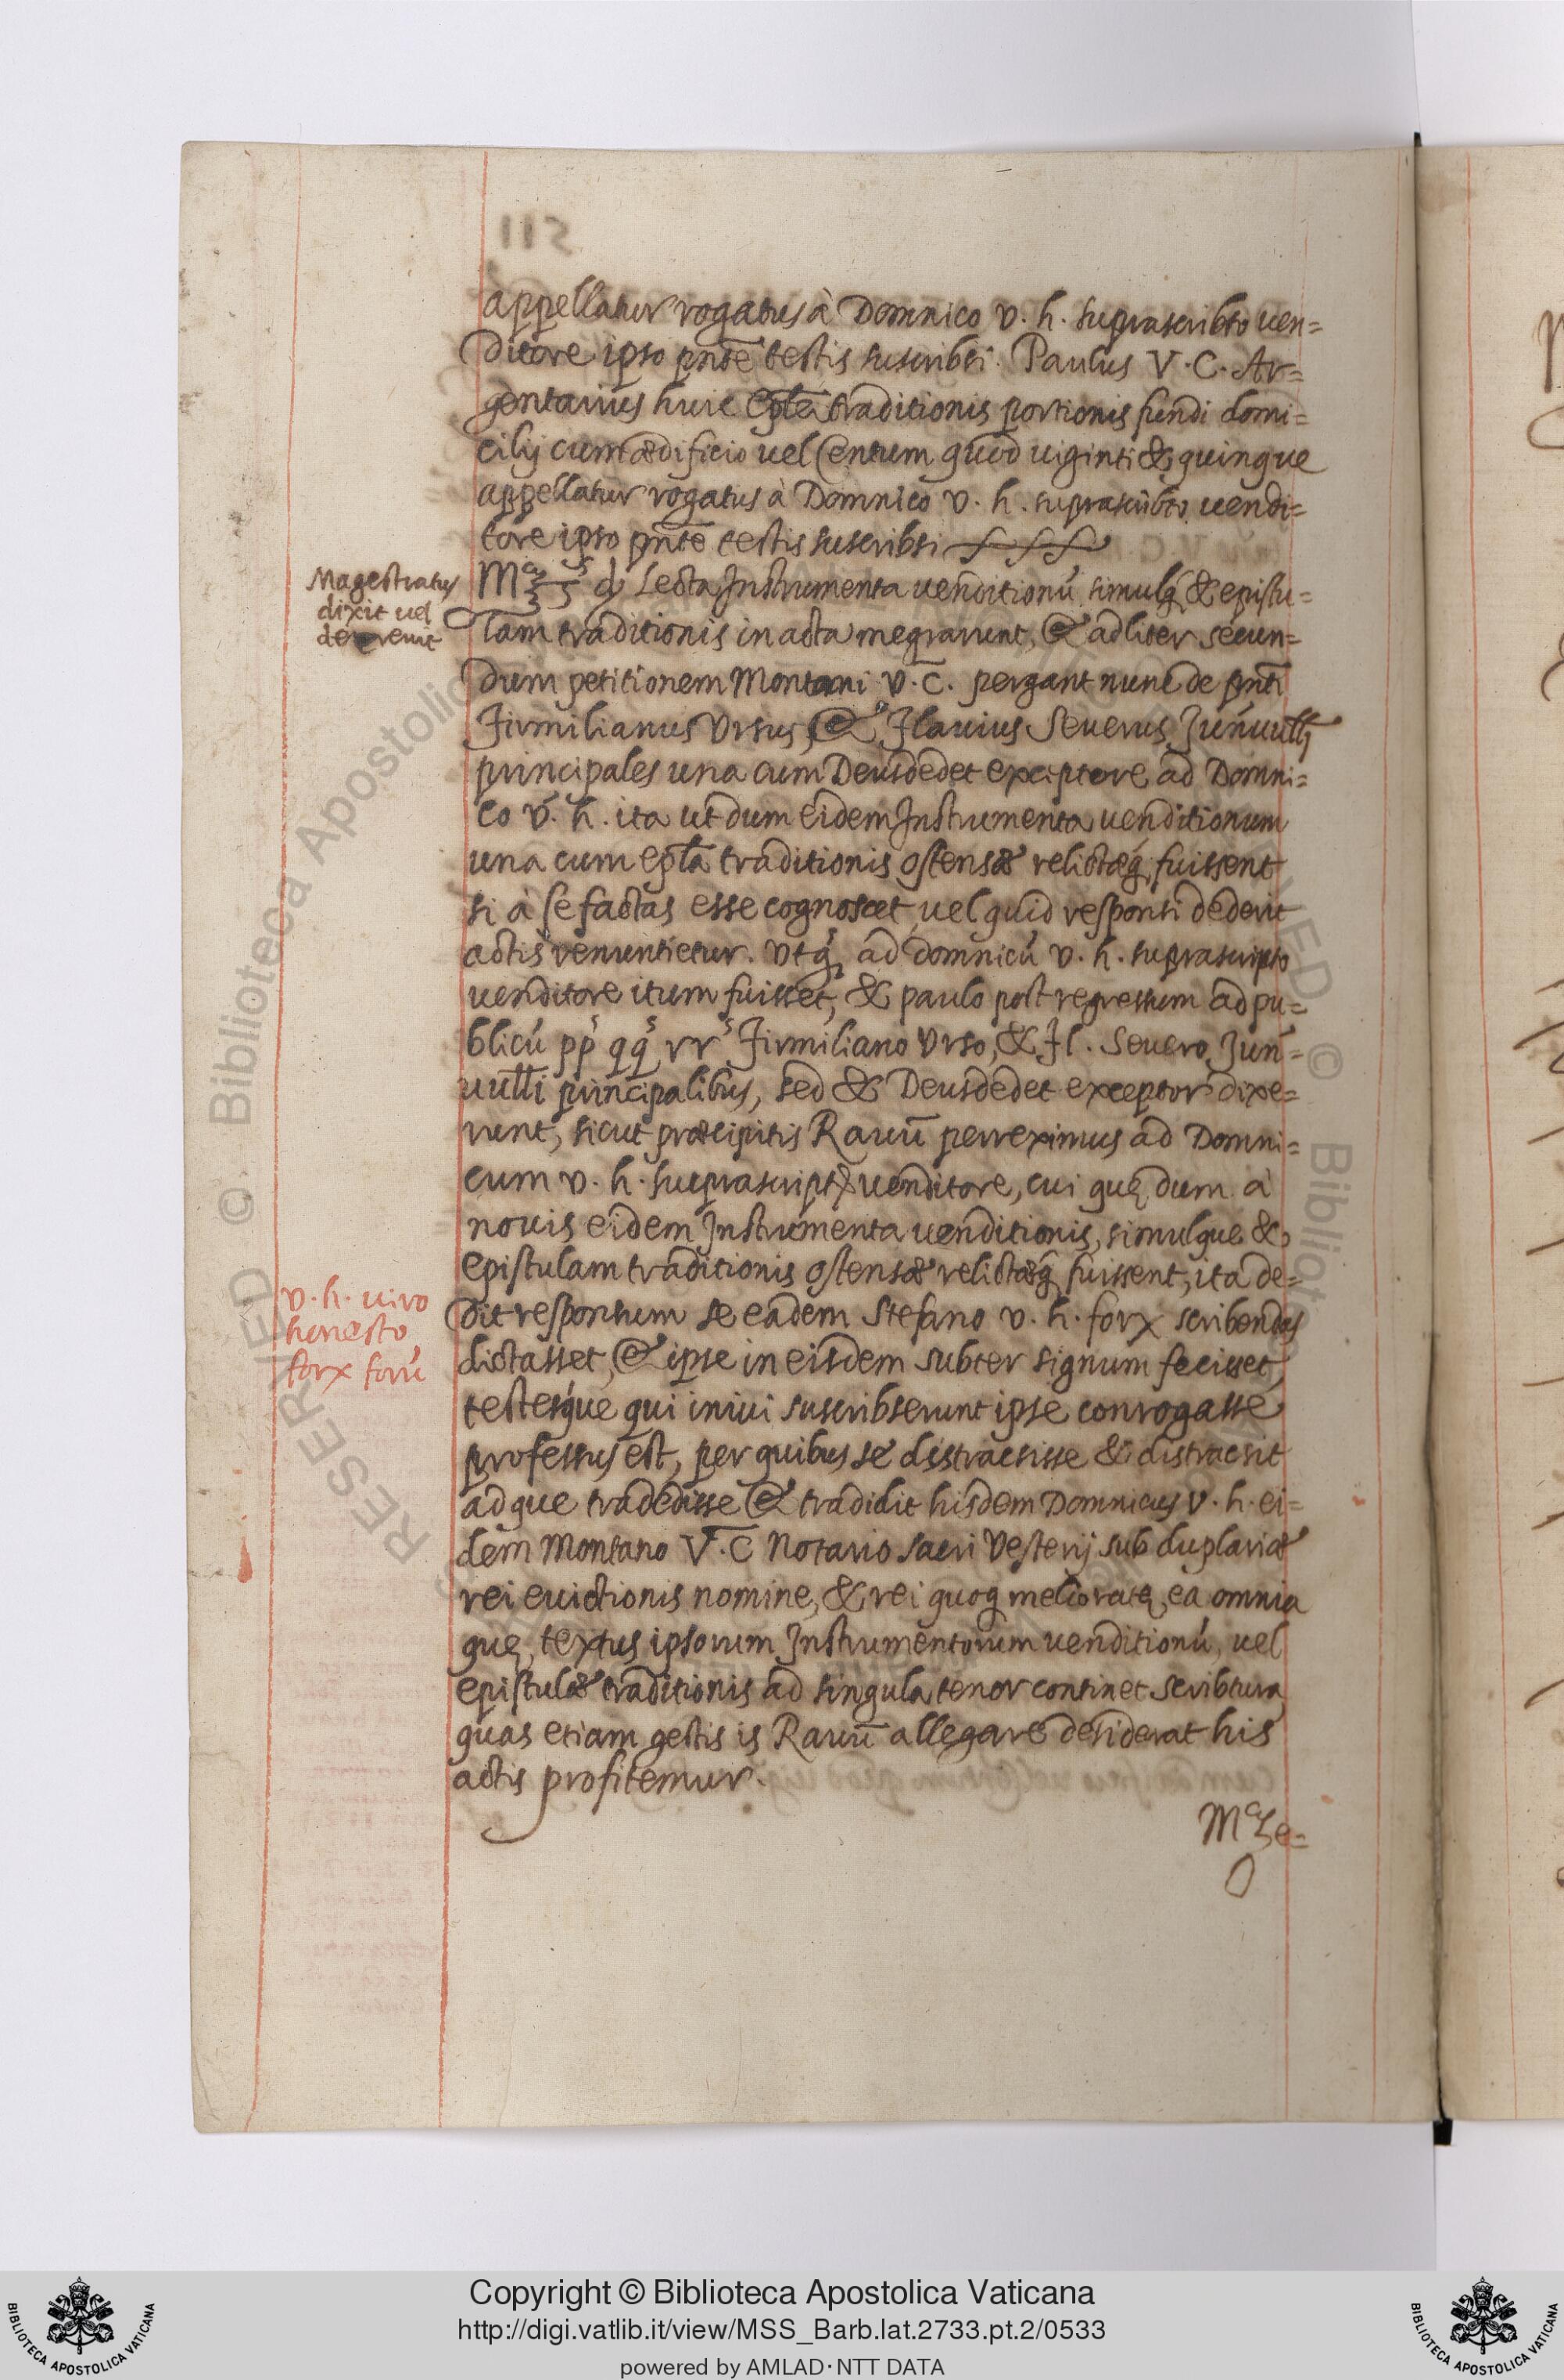 appellatur rogatus à Domnico v. h. suprascribto uen=
ditore ipso pn̄te testis suscribsi. Paulus V. C. Ar=
gentarius huic ep̄la traditionis portionis fundi domi=
cilij cum ædificio uel Centum quod uiginti & quinque
appellatur rogatus à Domnico v. h. suprascribto uendi=
tore ipso pn̄te testis suscribsi
Magestratus
dixit uel
decreuit
Lecta Instrumenta uenditionū simulq́ & epistu=
lam traditionis in acta megrarunt, & adliter secun=
dum petitionem Montani V. C. pergant nunc de pn̄ti
Firmilianus Vrsus, & Flauius Seuerus Jun̄uultj
principales una cum Deusdedet exceptore ad Domni=
co v. h. ita ut dum eidem Instrumenta uenditionum
una cum ep̄la traditionis ostensæ relictæq́ fuissent
si à se factas esse cognoscet, uel quid responsi dederit
actis renuntietur. Vtq́ ad domnicū v. h. suprascripto
uenditore itum fuisset, & paulo post regressum ad pu=
blicū pp̄ qq̄ rr̄ Firmiliano Vrso, & Fl. Seuero Jun̄=
uult̄i principalibus, sed & Deusdedet exceptor dixe=
runt, sicut præcipitis Rauū perreximus ad Domni=
cum v. h. suprascripto uenditore, cui quę dum à
nouis eidem Instrumenta uenditionis, simulque &
epistulam traditionis ostensæ relictæq́ fuissent, ita de=
v. h. uiro
honesto
forx forū
dit responsum se eadem Stefano v. h. forx scribendas
dictasset, & ipse in eisdem subter signum fecisset,
testesque qui iniui suscribserunt ipse conrogasse
professus est, per quibus se distracsisse & distracsit
ad que tradedisse & tradidit hisdem Domnicus v. h. ei=
dem Montano V. C Notario sacri Vesterij sub duplariæ
rei euictionis nomine, & rei quoq́ melioratę, ea omnia
quę textus ipsorum Instrumentorum uenditionū, uel
epistulæ traditionis ad singula tenor continet scribtura
quas etiam gestis is Rauū allegare desiderat his
actis profitemur.
Copyright © Biblioteca Apostolica Vaticana
http://digi.vatlib.it/view/MSS_Barb.lat.2733.pt.2/0533
powered by AMLAD·NTT DATA
BIBLIOTECA APOSTOLICA VATICANA
BIBLIOTECA APOSTOLICA VATICANA